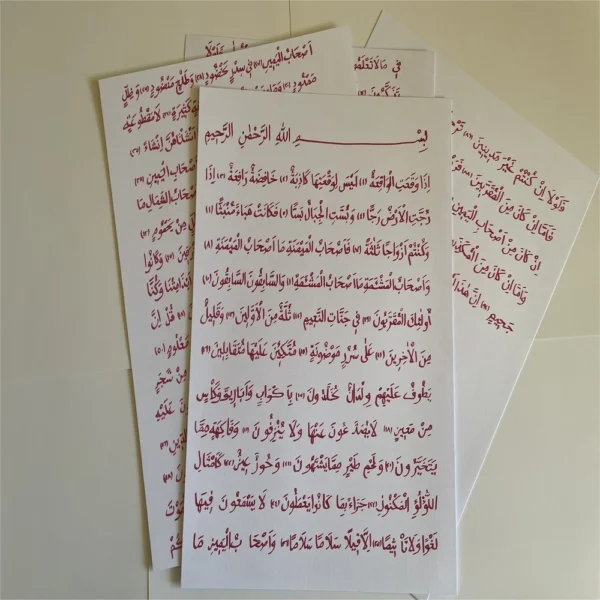 بِسْمِ اللهِ الرَّحْمٰنِ الرَّحِيْمِ
اِذَا وَقَعَتِ الْوَاقِعَةُ (١) لَيْسَ لِوَقْعَتِهَا كَاذِبَةٌ (٢) خَافِضَةٌ رَافِعَةٌ (٣) اِذَا
رُجَّتِ الْاَرْضُ رَجًّا (٤) وَبُسَّتِ الْجِبَالُ بَسًّا (٥) فَكَانَتْ هَبَاءً مُنْبَثًّا (٦)
وَكُنْتُمْ اَزْوَاجًا ثَلٰثَةً (٧) فَاَصْحَابُ الْمَيْمَنَةِ مَا اَصْحَابُ الْمَيْمَنَةِ (٨)
وَاَصْحَابُ الْمَشْئَمَةِ مَا اَصْحَابُ الْمَشْئَمَةِ (٩) وَالسَّابِقُوْنَ السَّابِقُوْنَ (١٠)
اُولٰئِكَ الْمُقَرَّبُوْنَ (١١) فِي جَنَّاتِ النَّعِيْمِ (١٢) ثُلَّةٌ مِنَ الْاَوَّلِيْنَ (١٣) وَقَلِيْلٌ
مِنَ الْاٰخِرِيْنَ (١٤) عَلٰى سُرُرٍ مَوْضُوْنَةٍ (١٥) مُتَّكِئِيْنَ عَلَيْهَا مُتَقَابِلِيْنَ (١٦)
يَطُوْفُ عَلَيْهِمْ وِلْدَانٌ مُخَلَّدُوْنَ (١٧) بِاَكْوَابٍ وَاَبَارِيْقَ وَكَأْسٍ
مِنْ مَعِيْنٍ (١٨) لَا يُصَدَّعُوْنَ عَنْهَا وَلَا يُنْزِفُوْنَ (١٩) وَفَاكِهَةٍ مِمَّا
يَتَخَيَّرُوْنَ (٢٠) وَلَحْمِ طَيْرٍ مِمَّا يَشْتَهُوْنَ (٢١) وَحُوْرٌ عِيْنٌ (٢٢) كَاَمْثَالِ
اللُّؤْلُؤِ الْمَكْنُوْنِ (٢٣) جَزَاءً بِمَا كَانُوْا يَعْمَلُوْنَ (٢٤) لَا يَسْمَعُوْنَ فِيْهَا
لَغْوًا وَلَا تَأْثِيْمًا (٢٥) اِلَّا قِيْلًا سَلَامًا سَلَامًا (٢٦) وَاَصْحَابُ الْيَمِيْنِ مَا
اَصْحَابُ الْيَمِيْنِ (٢٧) فِي سِدْرٍ مَخْضُوْدٍ (٢٨) وَطَلْحٍ مَنْضُوْدٍ (٢٩) وَظِلٍّ
مَمْدُوْدٍ (٣٠)
كَثِيْرَةٍ (٣٢) لَا مَقْطُوْعَةٍ
اَنْشَأْنَاهُنَّ اِنْشَاءً
اَصْحَابُ الشِّمَالِ مَا
مِنْ يَحْمُوْمٍ
وَكَانُوْا
وَكُنَّا
قُلْ اِنَّ
مَعْلُوْمٍ (٥٠)
مِنْ شَجَرٍ
عَلَيْهِ
فِي مَا لَا تَعْلَمُوْنَ
فَلَوْلَا اِنْ كُنْتُمْ غَيْرَ مَدِيْنِيْنَ (٨٦)
فَاَمَّا اِنْ كَانَ مِنَ الْمُقَرَّبِيْنَ (٨٨)
اِنْ كَانَ مِنْ اَصْحَابِ الْيَمِيْنِ
وَاَمَّا اِنْ كَانَ مِنَ
جَحِيْمٍ (٩٤) اِنَّ هٰذَا